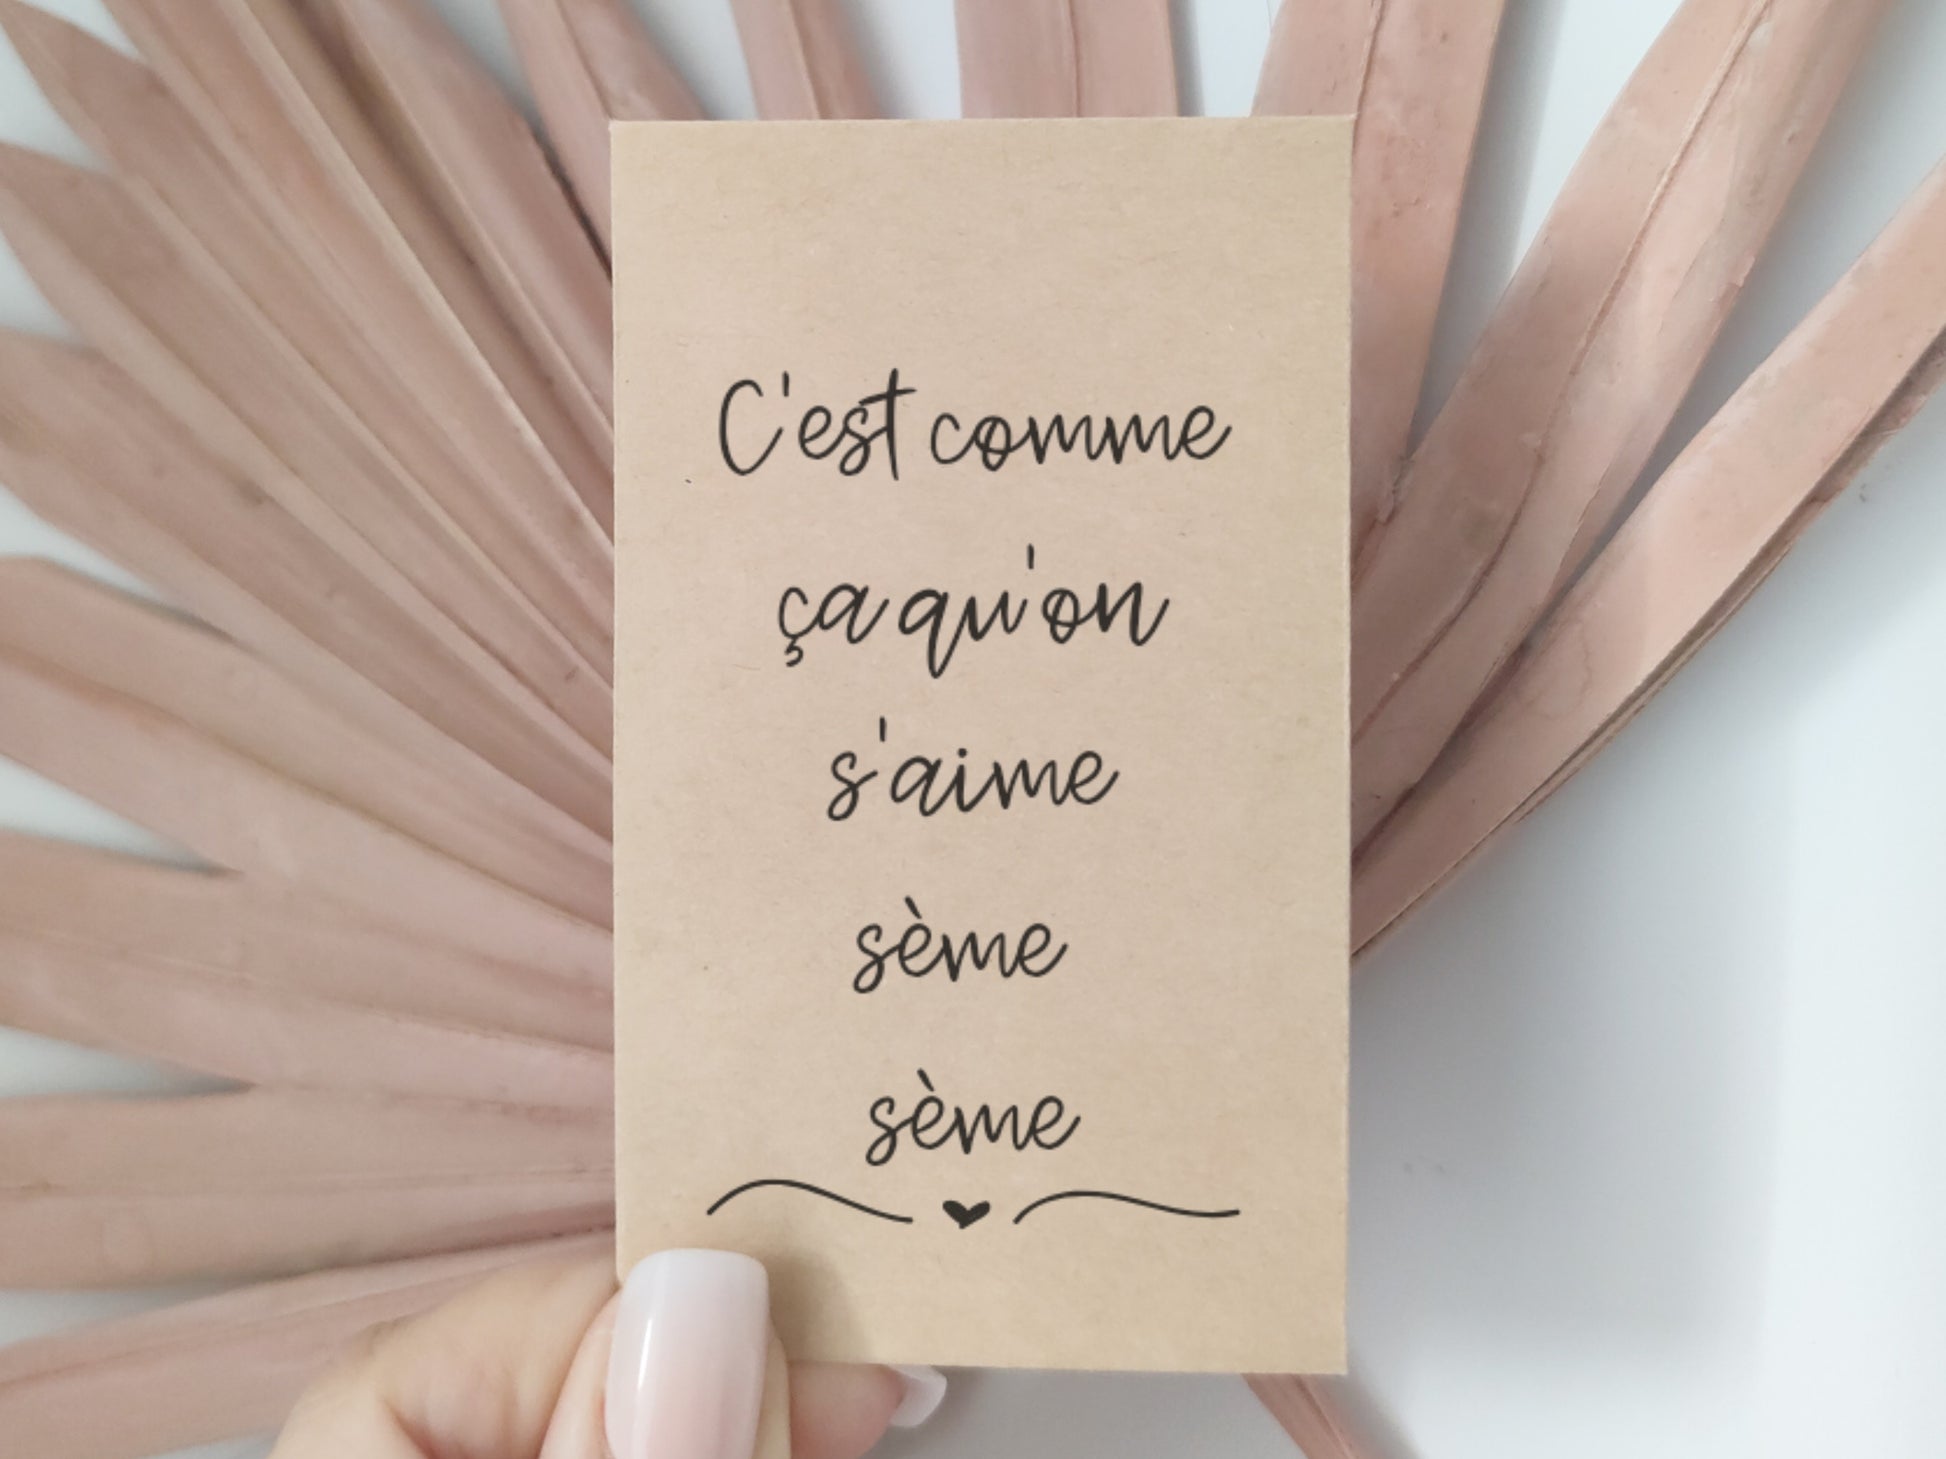 C'est comme
ça qu'on
s'aime
sème
sème